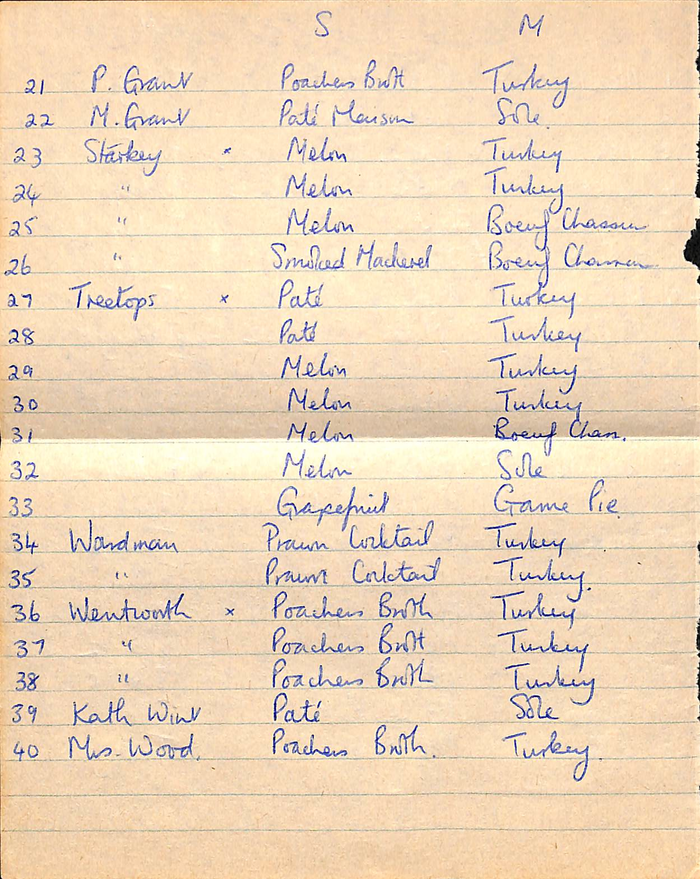 S M
21 P. Grant Poachers Broth Turkey
22 M. Grant Paté Maison Sole.
23 Starkey x Melon Turkey
24 " Melon Turkey
25 " Melon Boeuf Chasseur
26 " Smoked Mackerel Boeuf Chasseur
27 Treetops x Paté Turkey
28 Paté Turkey
29 Melon Turkey
30 Melon Turkey
31 Melon Boeuf Chass.
32 Melon Sole
33 Grapefruit Game Pie
34 Wardman Prawn Cocktail Turkey
35 " Prawn Cocktail Turkey.
36 Wentworth x Poachers Broth Turkey
37 " Poachers Broth Turkey
38 " Poachers Broth Turkey
39 Kath Wint Paté Sole
40 Mrs. Wood. Poachers Broth. Turkey.